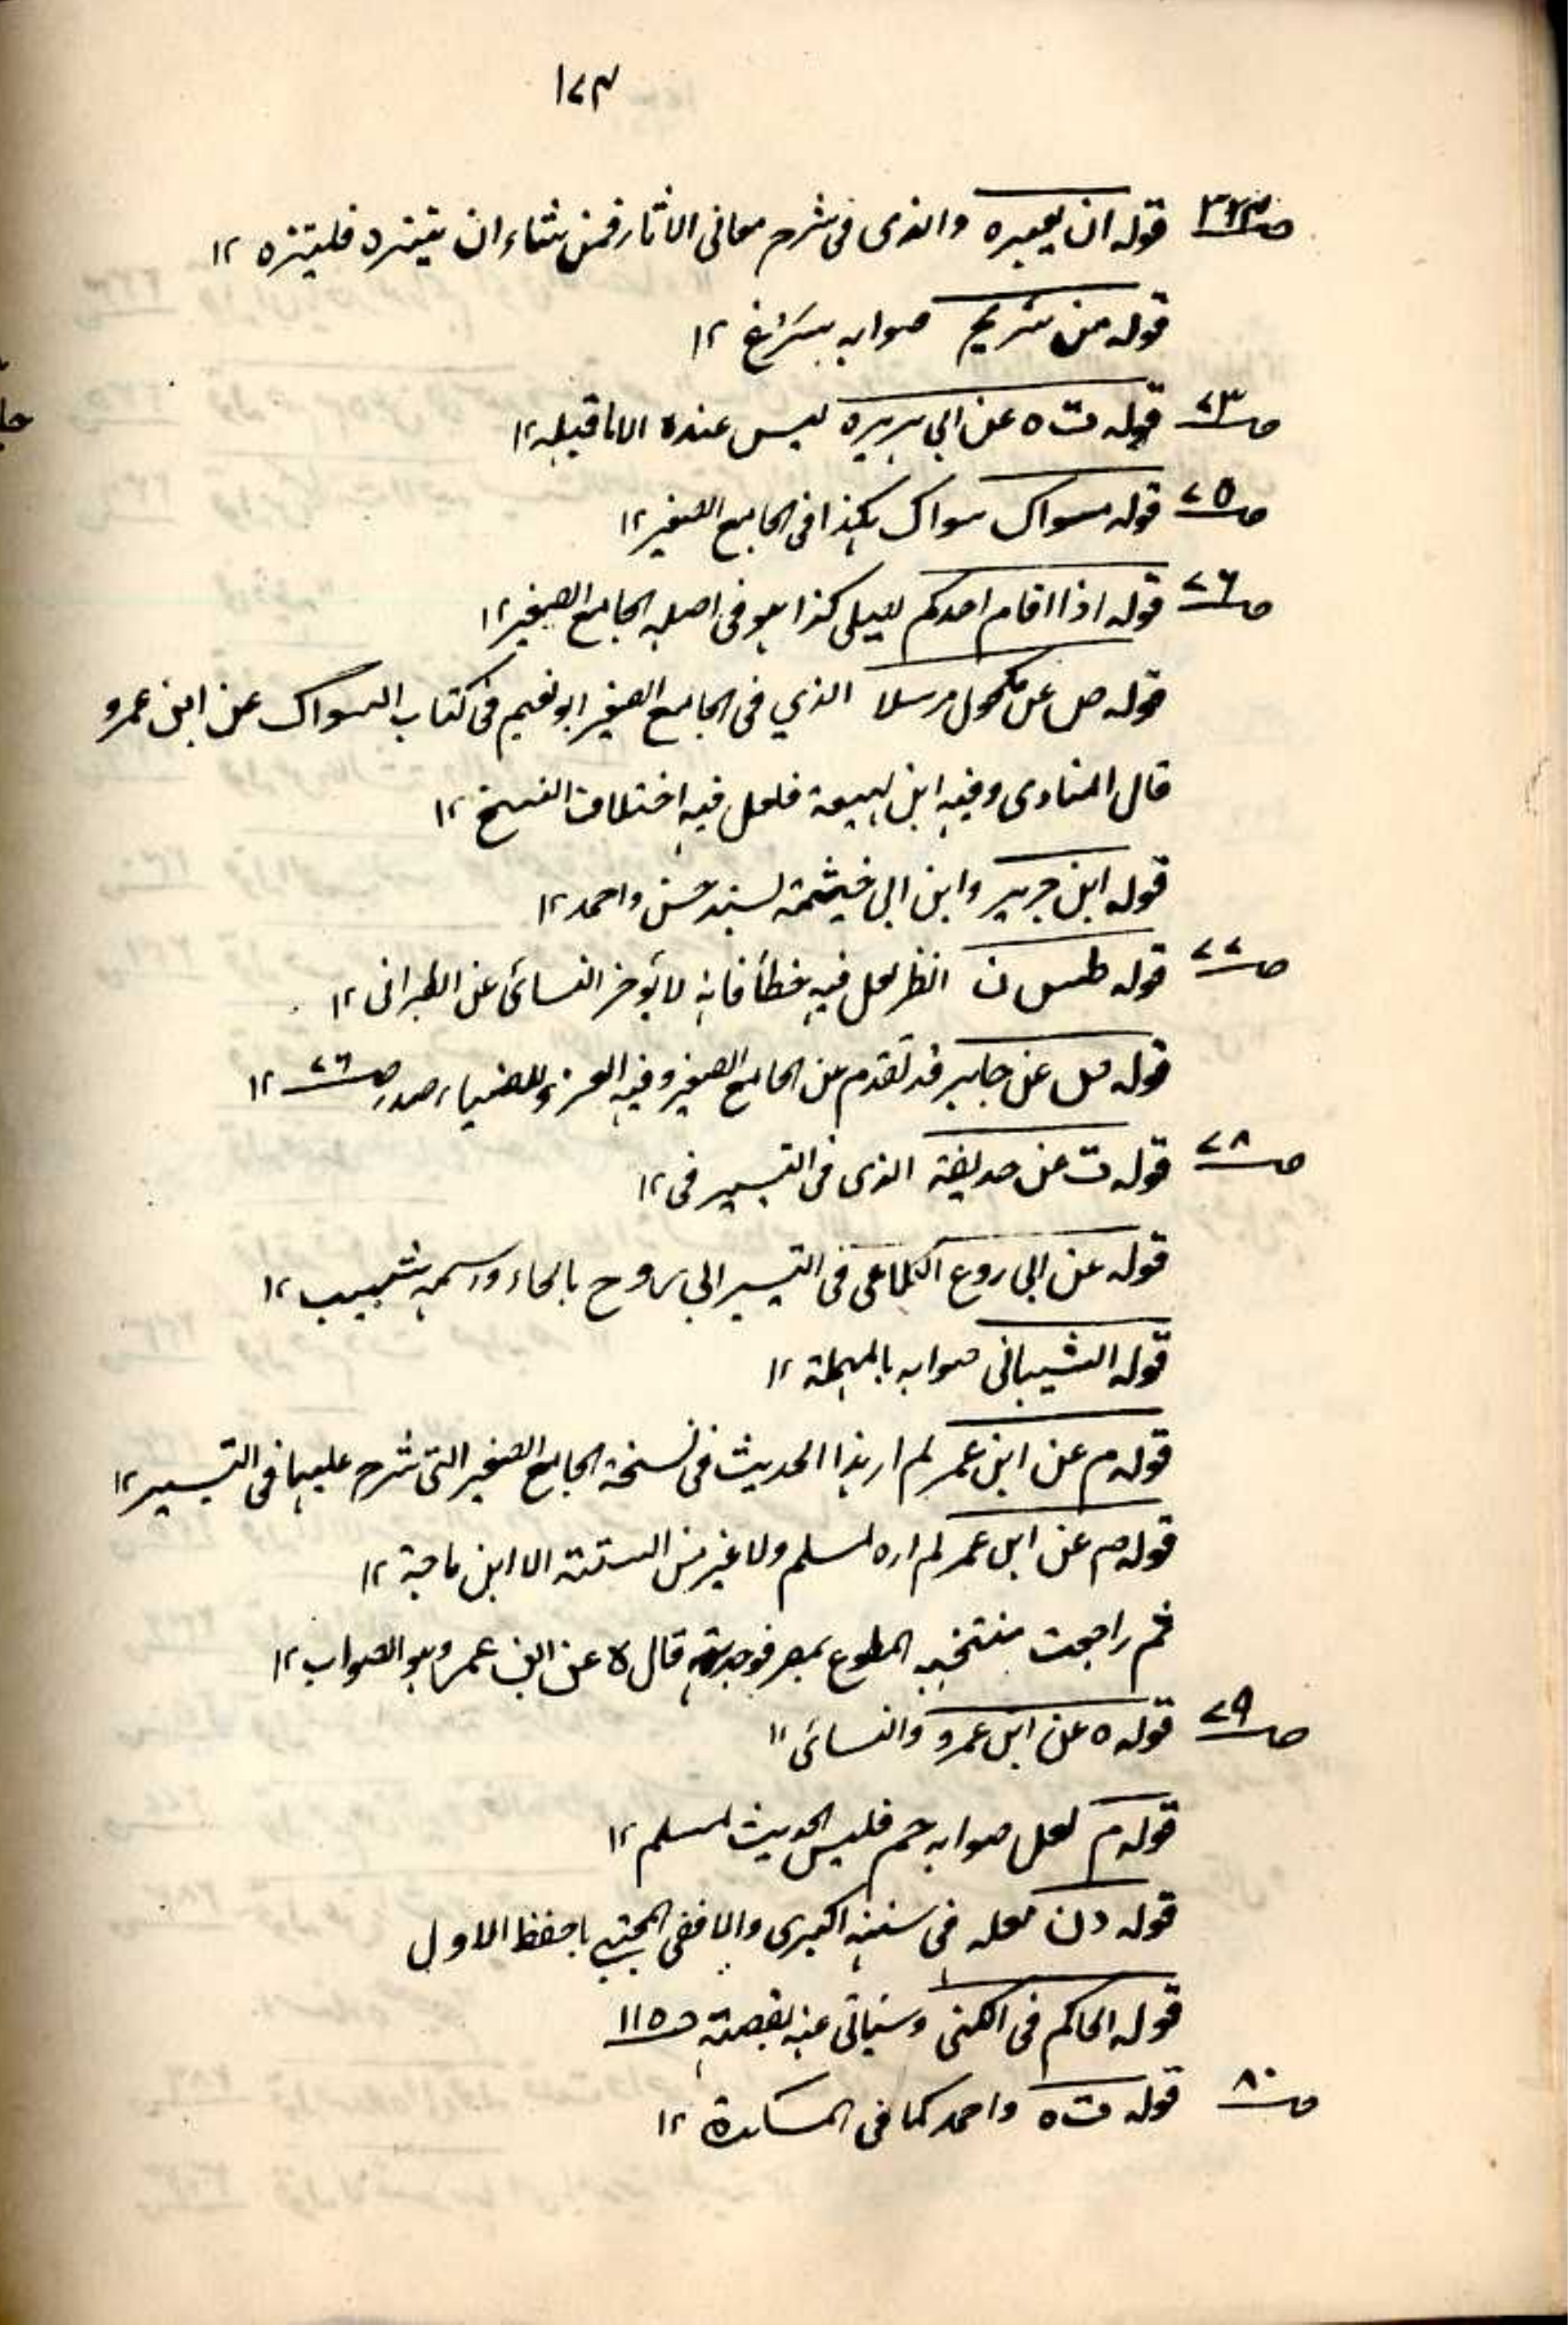 ١٧٣
ص٣٤٣ قوله ان يعبره والذى فى شرح معانى الاثار فمن شاء ان يتنزه فليتنزه ١٢
قوله من سريح صوابه بسَرْغ ١٢
ص٧٣ قوله ت ه عن ابي هريره ليس عنده الا ما قبله ١٢
ص٧٥ قوله مسواك سواك هكذا فى الجامع الصغير ١٢
ص٧٦ قوله اذا اقام احدكم ليلى كذا هو فى اصله الجامع الصغير ١٢
قوله ص عن مكحول مرسلا الذي فى الجامع الصغير ابو نعيم فى كتاب السواك عن ابن عمرو
قال المناوى وفيه ابن لهيعة فلعل فيه اختلاف النسخ ١٢
قوله ابن جرير وابن ابى خيثمة بسند حسن واحمد ١٢
ص٧٧ قوله طس ن انظر لعل فيه خطأ فانه لا يؤخر النسائى عن الطبرانى ١٢
قوله عن جابر قد تقدم عن الجامع الصغير وفيه العزو للضياء صدر ص٧٦ ١٢
ص٧٨ قوله ت عن حذيفة الذى فى التيسير فى ١٢
قوله عن ابى روع الكلاعى فى التيسير ابى روح بالحاء واسمه شبيب ١٢
قوله الشيبانى صوابه بالمهملة ١٢
قوله م عن ابن عمر لم ار هذا الحديث فى نسخة الجامع الصغير التى شرح عليها فى التيسير ١٢
قوله م عن ابن عمر لم اره لمسلم ولا غير من الستة الا ابن ماجة ١٢
ثم راجعت منتخبه المطبوع بمصر فوجدته قال ه عن ابن عمر وهو الصواب ١٢
ص٧٩ قوله ه عن ابن عمرو والنسائى ١٢
قوله م لعل صوابه حم فليس الحديث لمسلم ١٢
قوله د ن لعله فى سننه الكبرى والا ففى المجتبى باحفظ الاول
قوله الحاكم فى الكنى وسياتى عنه بقصته ص١١٥
ص٨٠ قوله ت ه واحمد كما فى المشكوة ١٢